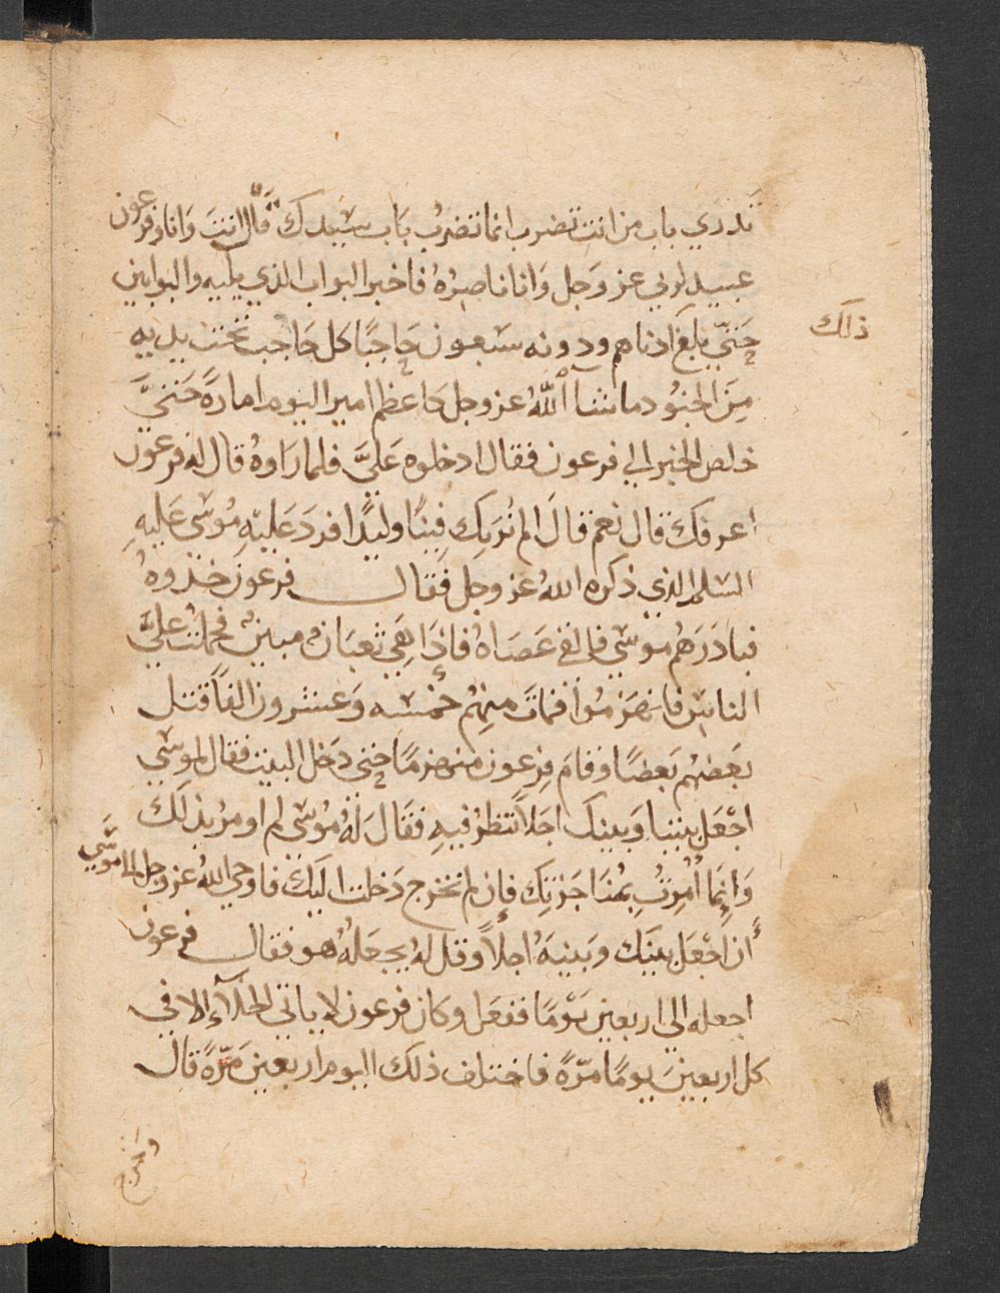 تدري باب من انت تضرب انما تضرب باب سيدك قال انت وانا وفرعون
عبيد لربي عز وجل وانا ناصره فاخبر البواب الذي يليه والبوابين
حتى بلغ ادناهم ودونه سبعون حاجبا كل حاجب تحت يديه
ذلك
من الجنود ما شا الله عز وجل كاعظم امير اليوم امارة حتى
خلص الخبر الى فرعون فقال ادخلوه علي فلما راوه قال له فرعون
اعرفك قال نعم قال الم نربك فينا وليدا فرد عليه موسى عليه
السلم الذي ذكره الله عز وجل فقال فرعون خذوه
فبادرهم موسى فالقى عصاه فاذا هي ثعبان مبين فحملت على
الناس فانهزموا فمات منهم خمسه وعشرون الفا قتل
بعضهم بعضا وقام فرعون منهزما حتى دخل البيت فقال لموسى
اجعل بيننا وبينك اجلا ننظر فيه فقال له موسى لم اومر بذلك
وانما امرت بمناجزتك فان لم تخرج دخلت اليك فاوحى الله عز وجل الى موسى
ان اجعل بينك وبينه اجلا وقل له يجعله هو فقال فرعون
اجعله الى اربعين يوما ففعل وكان فرعون لا ياتي الخلآء الا في
كل اربعين يوما مرة فاختلف ذلك اليوم اربعين مرة قال
وخرج